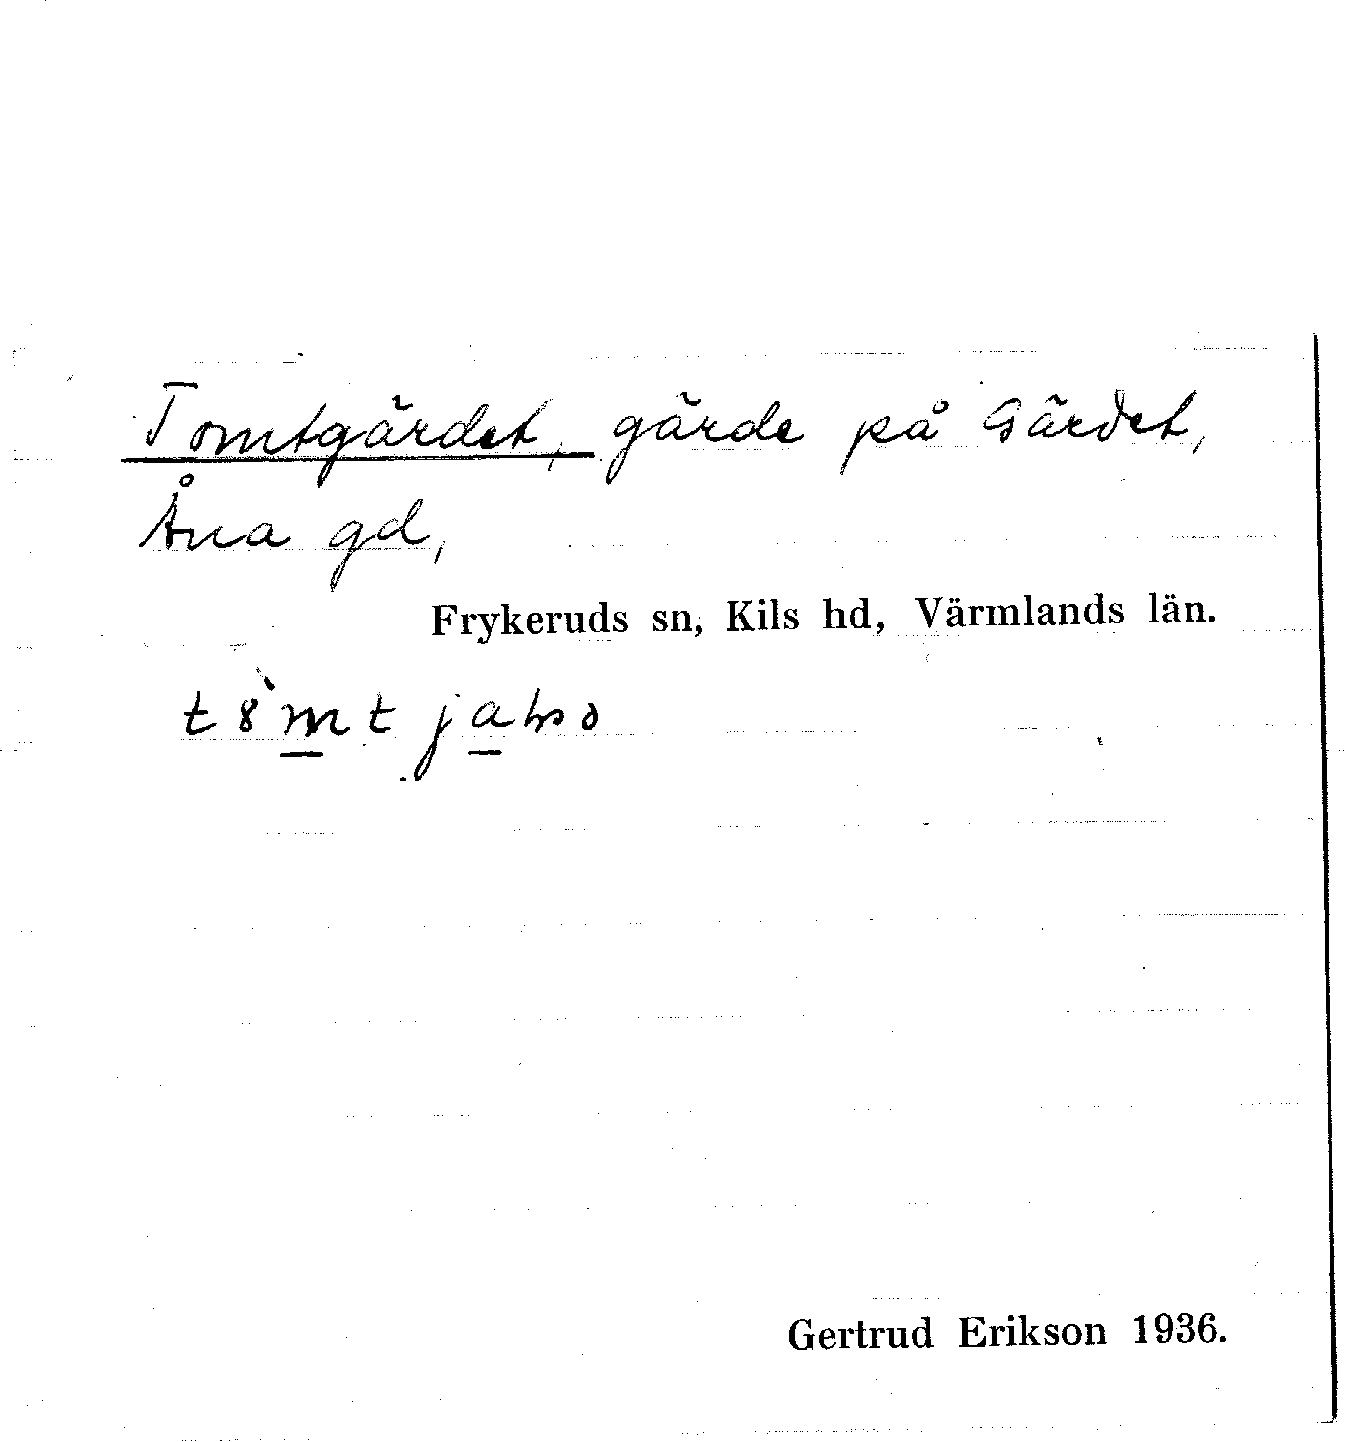 Tomtgärdet, gärde på Gärdet,
Åna gd,
Frykeruds sn, Kils hd, Värmlands län.
Gertrud Erikson 1936.